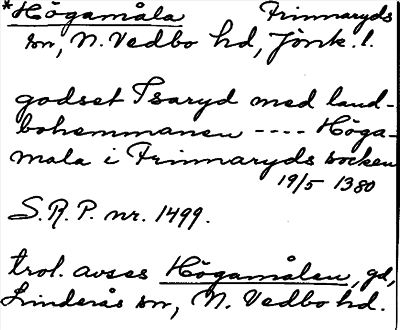 *Högamåla Frinnaryds
sn, N. Vedbo hd, Jönk. l.
godset Isaryd med land-
bohemmanen ---- Höga-
mala i Frinnaryds socken
19/5 1380
S.R.P. nr. 1499.
trol. avses Högamålen, gd,
Linderås sn, N. Vedbo hd.